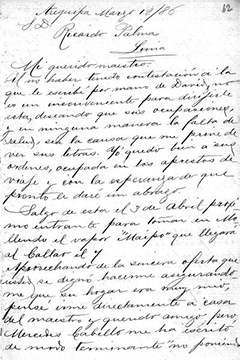 Arequipa Marzo 18/86
62
S D
Ricardo Palma
Lima
Mi querido maestro:
El no haber tenido contestación á la
que le escribí por mano de David, no
es un inconveniente para dirigirle
esta, deseando que sus ocupaciones,
y en ninguna manera la falta de
salud, sea la causa que me prive de
ver sus letras. Yo quedo bien a sus
ordenes, ocupada en los aprestos de
viaje y con la esperanza de que
pronto le daré un abrazo.
Salgo de esta el 3 de Abril próxi
mo entrante para tomar en Mo
llendo el vapor Maipo que llegará
al Callao el 7
Aprovechando de la sincera oferta que
usted se dignó hacerme asegurando
me que su hogar era muy mio,
pensé irme directamente a casa
del maestro y querido amigo pero
Mercedes Cabello me ha escrito
de modo terminante no poniendo